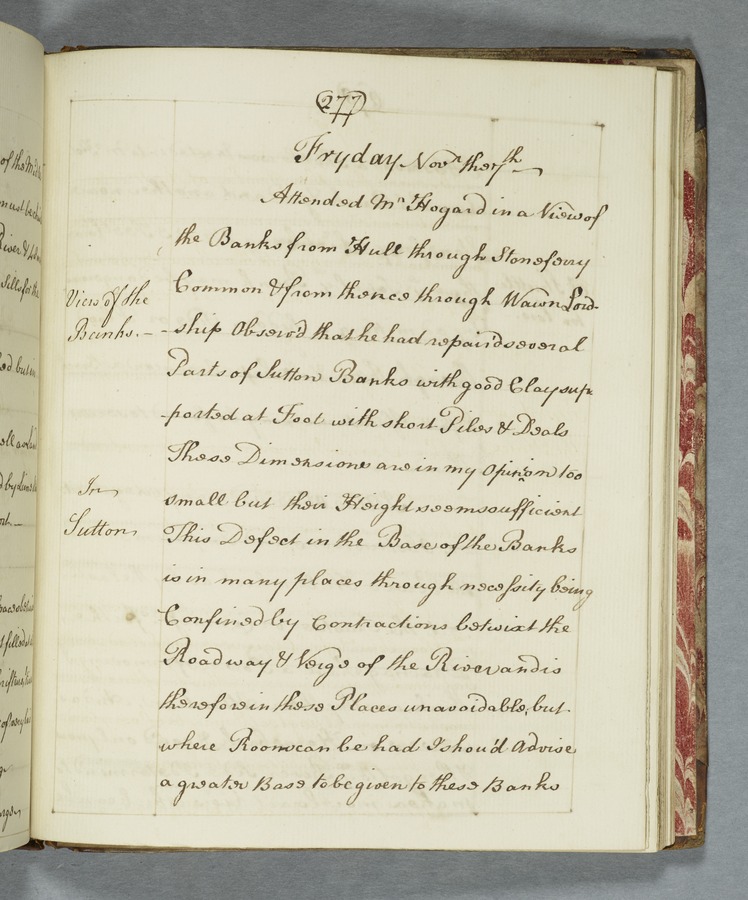 277
Fryday Novr. the 7th
Attended Mr Hogard in a View of
the Banks from Hull through Stoneferry
Common & from thence through Wawn Lord-
-ship Observd that he had repaird several
Parts of Sutton Banks with good Clay sup-
-ported at Foot with short Piles & Deals
These Dimensions are in my Opinion too
small but their Height seems sufficient
This Defect in the Base of the Banks
is in many places through necessity being
Confined by Contractions betwixt the
Roadway & Verge of the River and is
therefore in these Places unavoidable, but
where Room can be had I shou'd Advise
a greater Base to be given to these Banks
View of the
Banks.-
In
Sutton